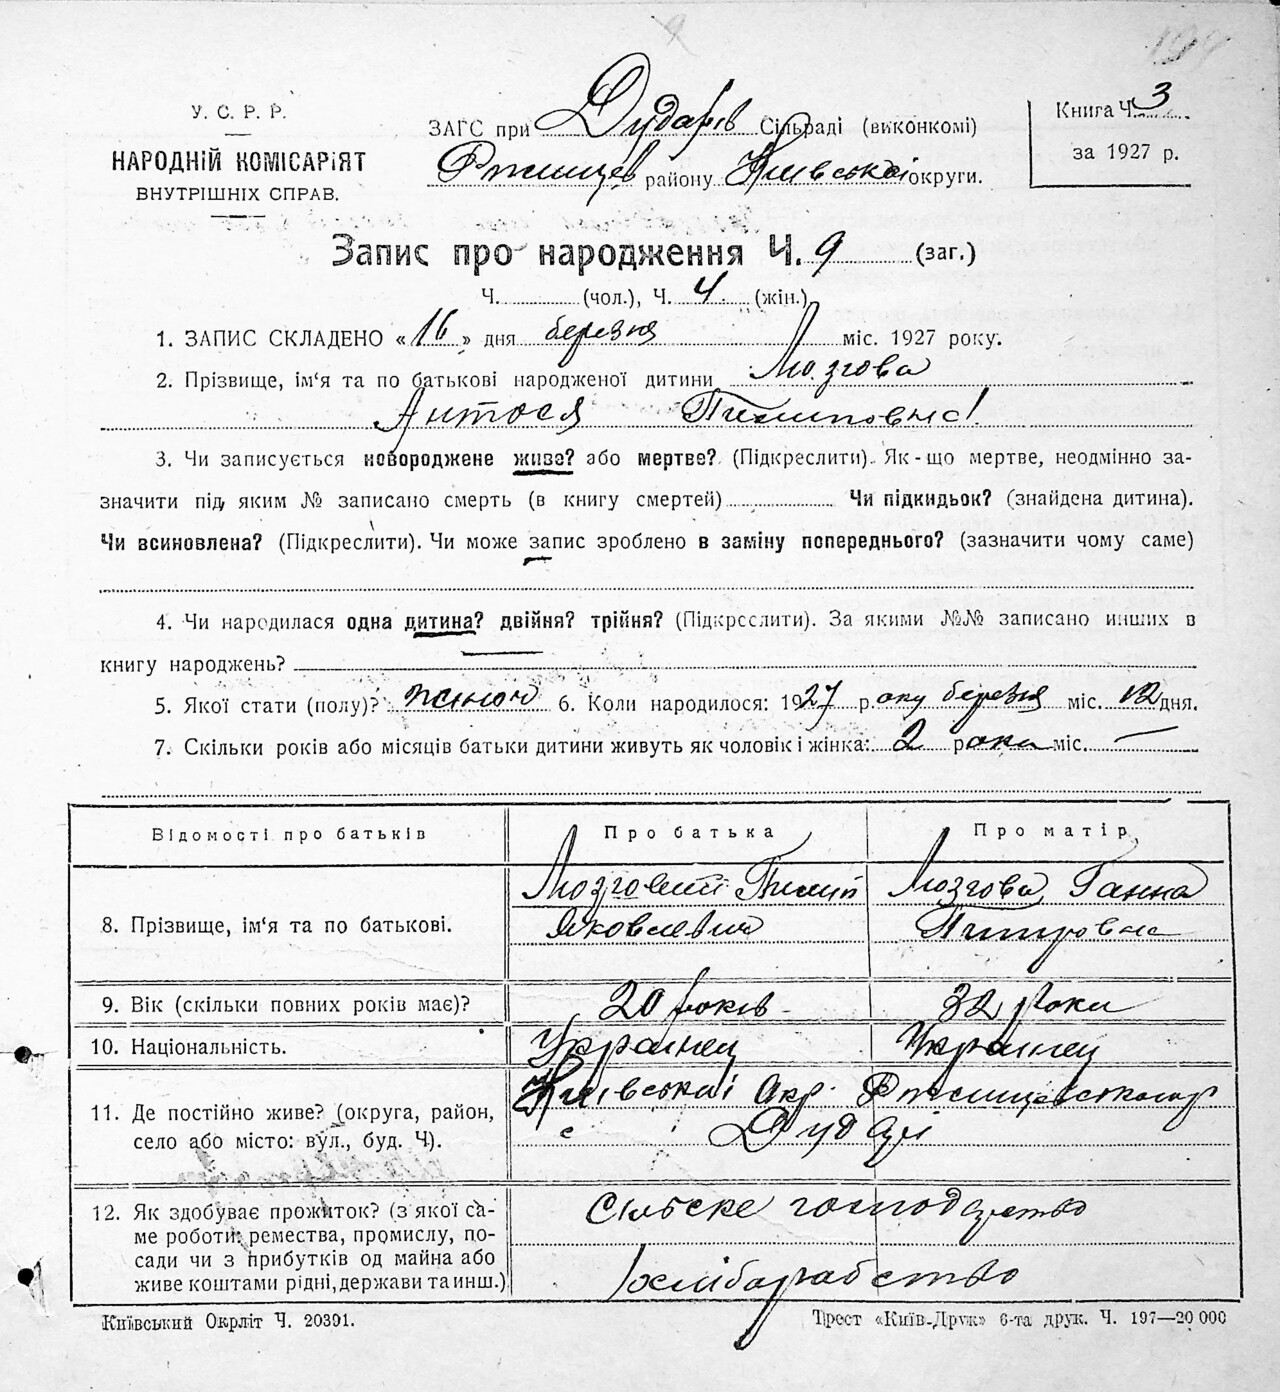 У. С. Р. Р.
НАРОДНІЙ КОМІСАРІЯТ
ВНУТРІШНІХ СПРАВ.
ЗАГС при Дударів Сільраді (виконкомі)
Ржищев району Київської округи.
Книга Ч. 3
за 1927 р.
Запис про народження Ч. 9 (заг.)
Ч. (чол.), Ч. 4 (жін.)
1. ЗАПИС СКЛАДЕНО «16» дня березня міс. 1927 року.
2. Прізвище, ім‘я та по батькові народженої дитини Мозгова
Антося Пилиповна
3. Чи записується новороджене живе? або мертве? (Підкреслити). Як-що мертве, неодмінно за-
значити під яким № записано смерть (в книгу смертей) Чи підкидьок? (знайдена дитина).
Чи всиновлена? (Підкреслити). Чи може запис зроблено в заміну попереднього? (зазначити чому саме)
4. Чи народилася одна дитина? двійня? трійня? (Підкреслити). За якими №№ записано инших в
книгу народжень?
5. Якої стати (полу)? жіноч 6. Коли народилося: 1927 року березня міс. 12 дня.
7. Скільки років або місяців батьки дитини живуть як чоловік і жінка: 2 роки міс. —
Відомості про батьків Про батька Про матір
8. Прізвище, ім‘я та по батькові. Мозговий Пилип Мозгова Ганна
Яковлевич Питровна
9. Вік (скільки повних років має)? 20 років 32 роки
10. Національність. Українец Українец
11. Де постійно живе? (округа, район,
село або місто: вул., буд. Ч).
Київської Окр. Ржищевського р
с Дударі
12. Як здобуває прожиток? (з якої са-
ме роботи: ремества, промислу, по-
сади чи з прибутків од майна або
живе коштами рідні, держави та инш.)
Сільське господарство
хліборабство
Київський Окрліт Ч. 20391.
Трест «Київ-Друк» 6-та друк. Ч. 197—20 000